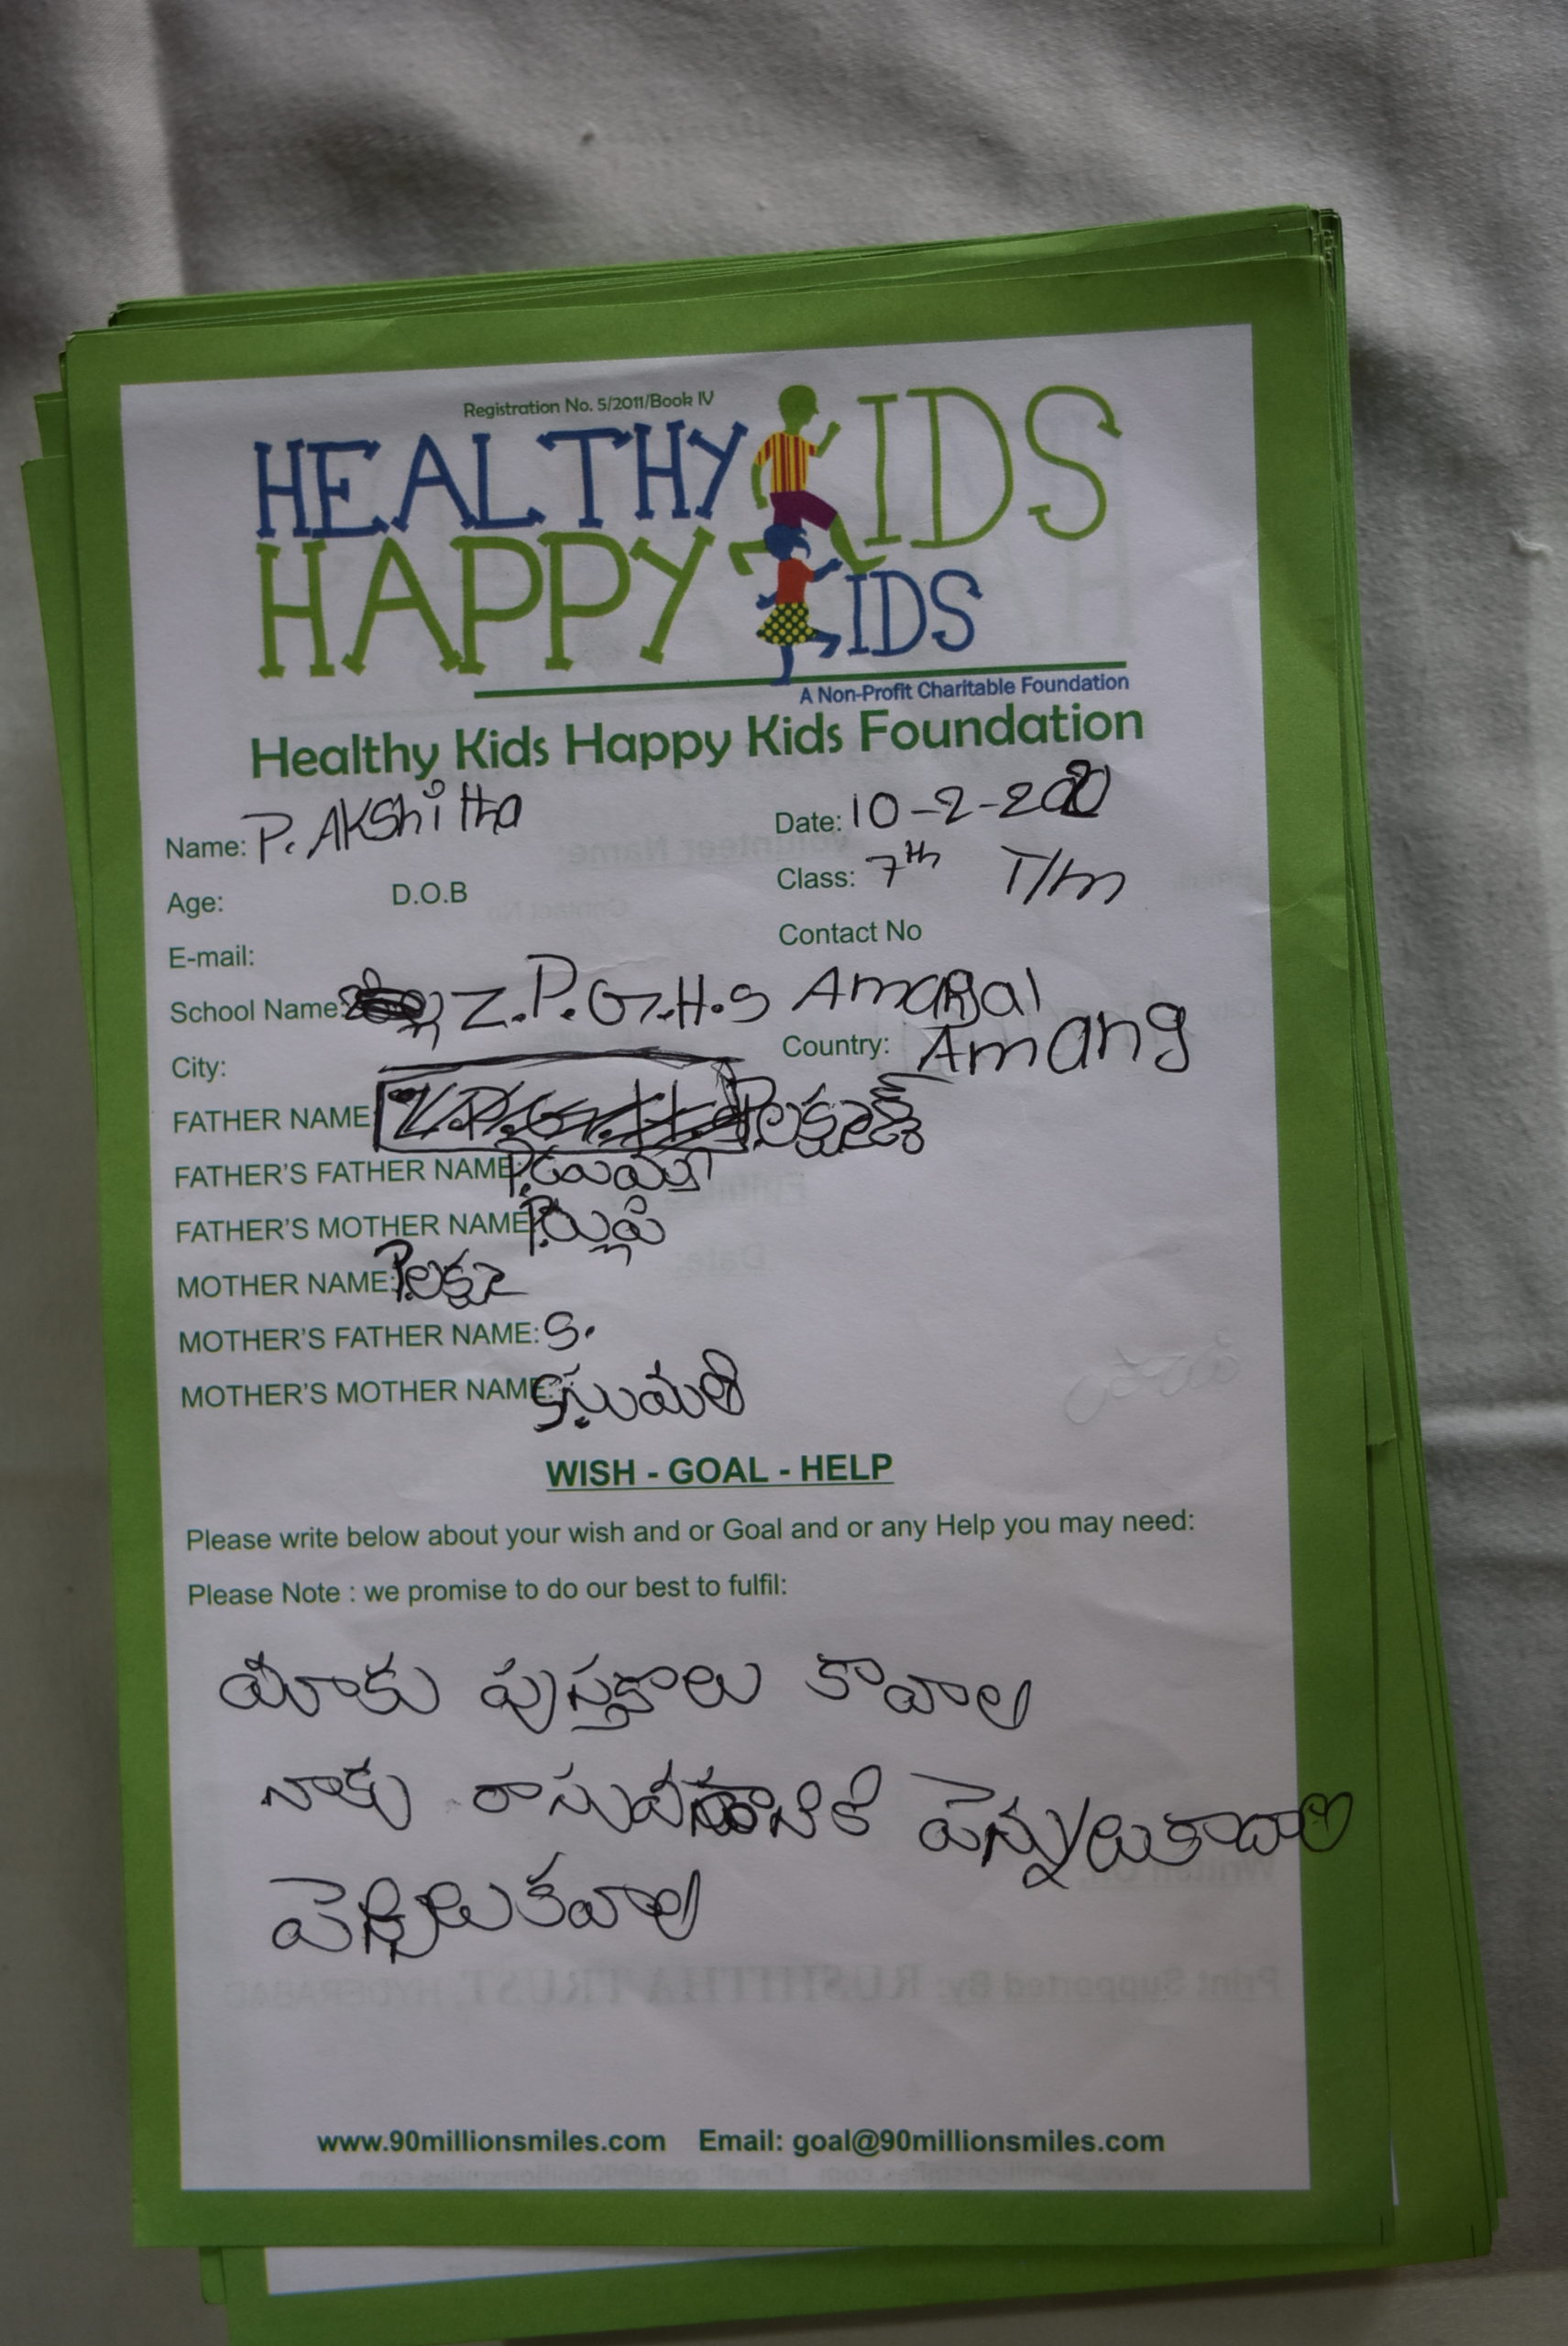 Registration No. 5/2011/Book IV
HEALTHY KIDS
HAPPY KIDS
A Non-Profit Charitable Foundation
Healthy Kids Happy Kids Foundation
Name: P. AKShitha Date: 10-2-2020
Age: D.O.B Class: 7th T/m
E-mail: Contact No
School Name: Z.P.G.H.S Amangal
City: Country: Amang
FATHER NAME
FATHER'S FATHER NAME:
FATHER'S MOTHER NAME:
MOTHER NAME:
MOTHER'S FATHER NAME: S.
MOTHER'S MOTHER NAME: S. సుమతి
WISH - GOAL - HELP
Please write below about your wish and or Goal and or any Help you may need:
Please Note : we promise to do our best to fulfil:
మాకు పుస్తకాలు కావాలి
నాకు పెన్నులు
కవాలి
www.90millionsmiles.com Email: goal@90millionsmiles.com